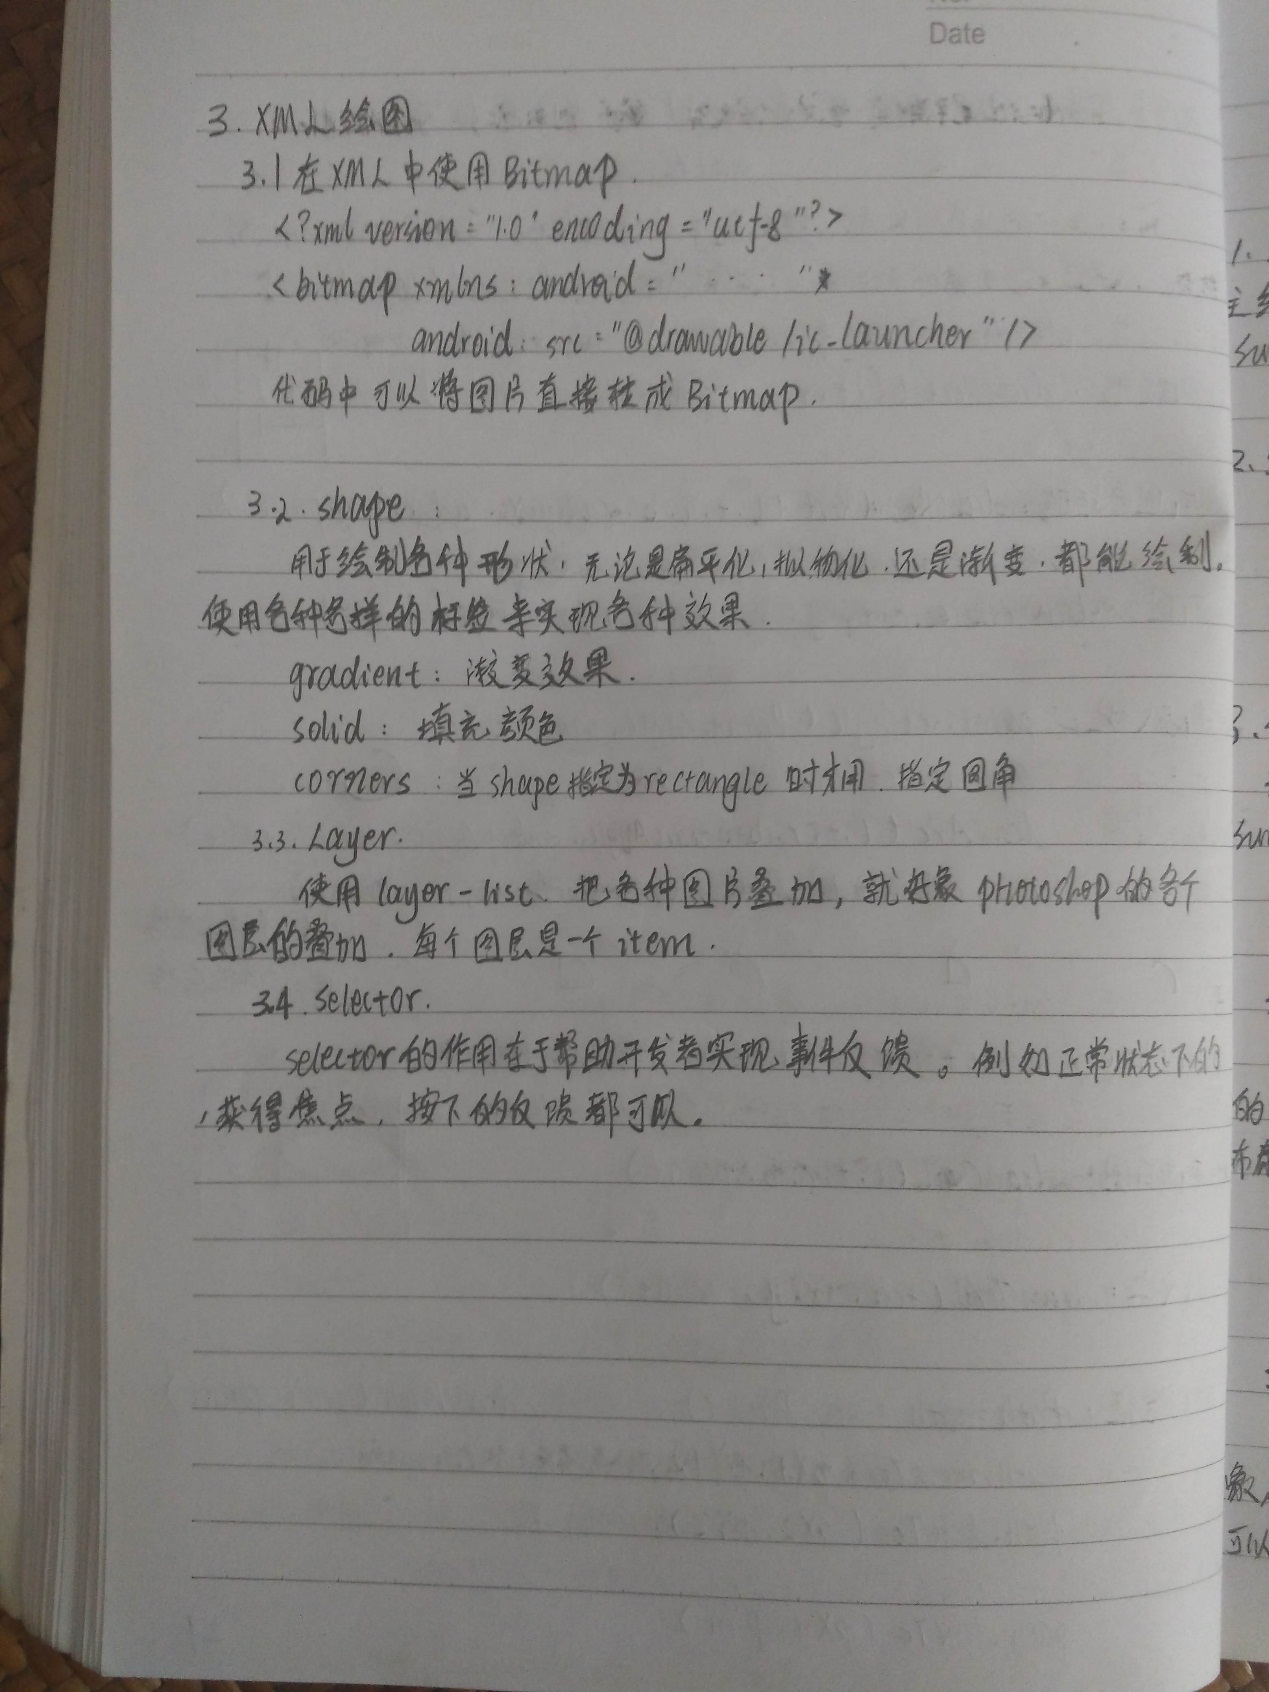 Date
3. XML绘图
3.1 在XML中使用Bitmap.
<?xml version="1.0" encoding="utf-8"?>
<bitmap xmlns:android=" ····· "
android:src="@drawable/ic-launcher"/>
代码中可以将图片直接转成Bitmap.
3.2. shape:
用于绘制各种形状,无论是扁平化,拟物化.还是渐变.都能绘制.
使用各种各样的标签来实现各种效果.
gradient: 渐变效果.
solid: 填充颜色
corners: 当shape指定为rectangle时才用.指定圆角
3.3. Layer.
使用layer-list、把各种图片叠加,就好象photoshop的各个
图层的叠加.每个图层是一个item.
3.4. selector.
selector的作用在于帮助开发者实现事件反馈。例如正常状态下的
,获得焦点,按下的反馈都可以。
1.
主
su
2.
3.
sun
的
布
象,
可以